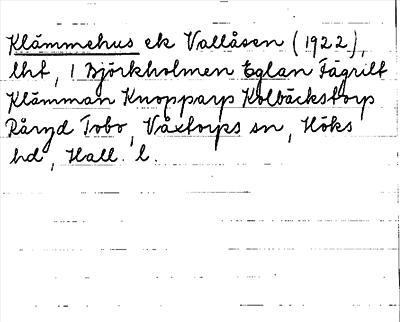 Klämmehus ek Vallåsen (1922),
lht, 1 Björkholmen Eglan Fägrilt
Klämman Knopparp Kolbäckstorp
Råryd Tobo, Våxtorps sn, Höks
hd, Hall. l.